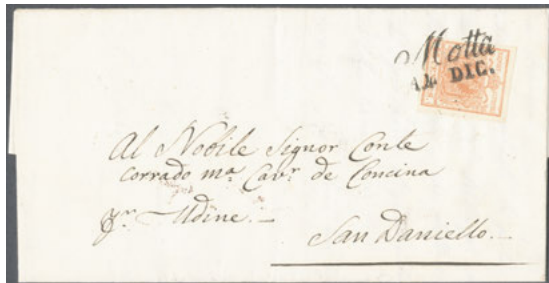 Motta
14 DIC.
Al Nobile Signor Conte
Corrado m.ª Cav.r de Concina
p.r Udine.—
San Daniello.—